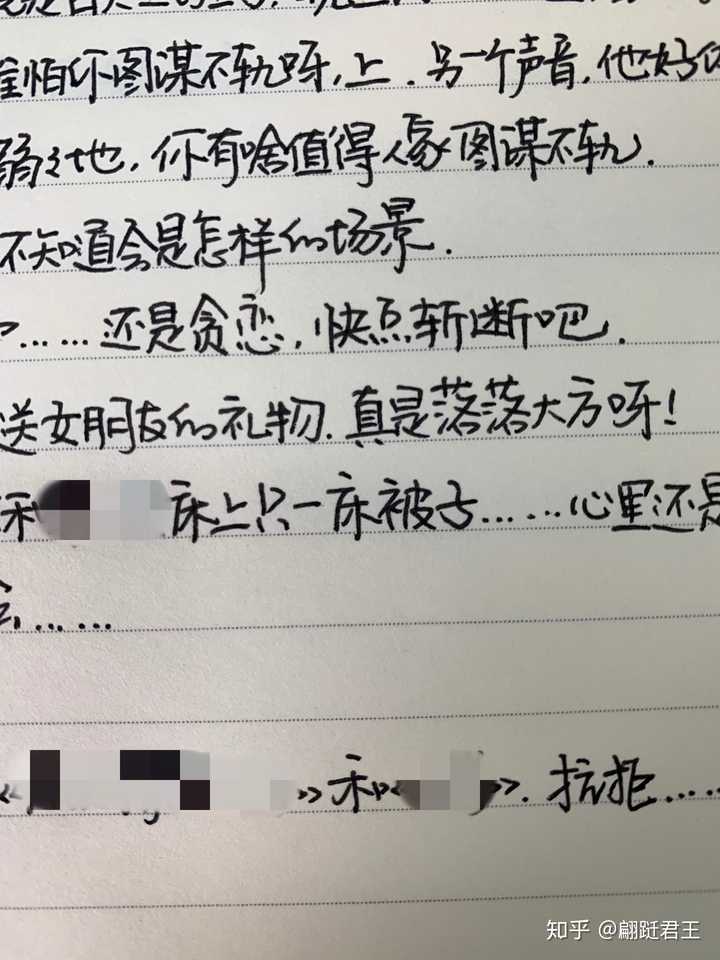 怕你图谋不轨呀,上.另一个声音,他好
地,你有啥值得人家图谋不轨.
不知道会是怎样的场景.
……还是贪恋,快点斩断吧.
送女朋友的礼物.真是落落大方呀!
和 床上只一床被子……心里还是
……
« »和« ».抗拒……
知乎 @翩跹君王